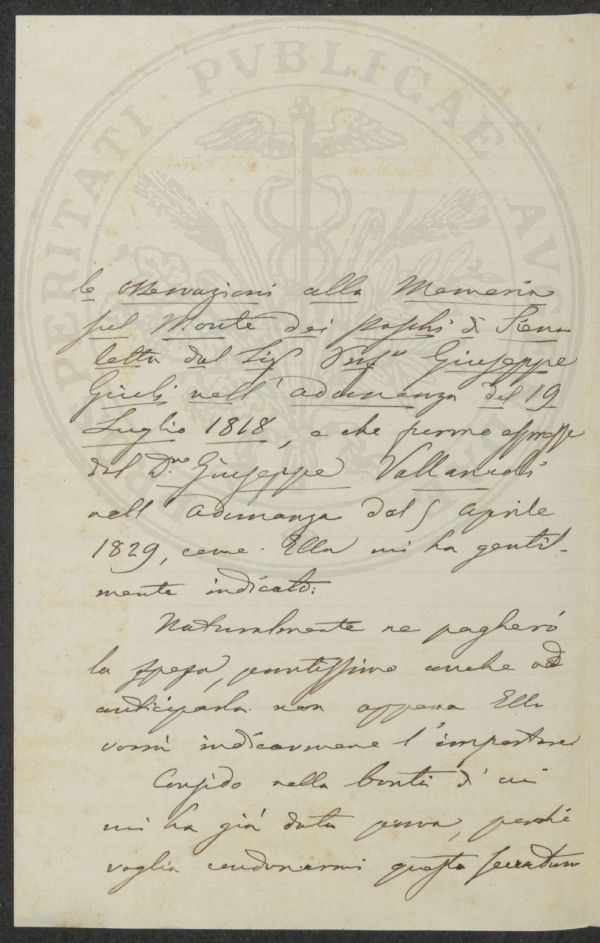 le Osservazioni alla Memoria
sul Monte dei Paschi di Siena
letta dal Sig. Prof.re Giuseppe
Giuli nell'adunanza del 19
Luglio 1818, e che furono espresse
dal D.re Giuseppe Vallancoli
nell'adunanza del 5 Aprile
1829, come Ella mi ha gentil-
mente indicato.
Naturalmente ne pagherò
la spesa, prontissimo anche ad
anticiparla non appena Ella
vorrà indicarmene l'importare
Confido nella bontà di cui
mi ha già data prova, perché
voglia condonarmi questa seccatura
PROSPERITATI PVBLICAE AVGENDAE